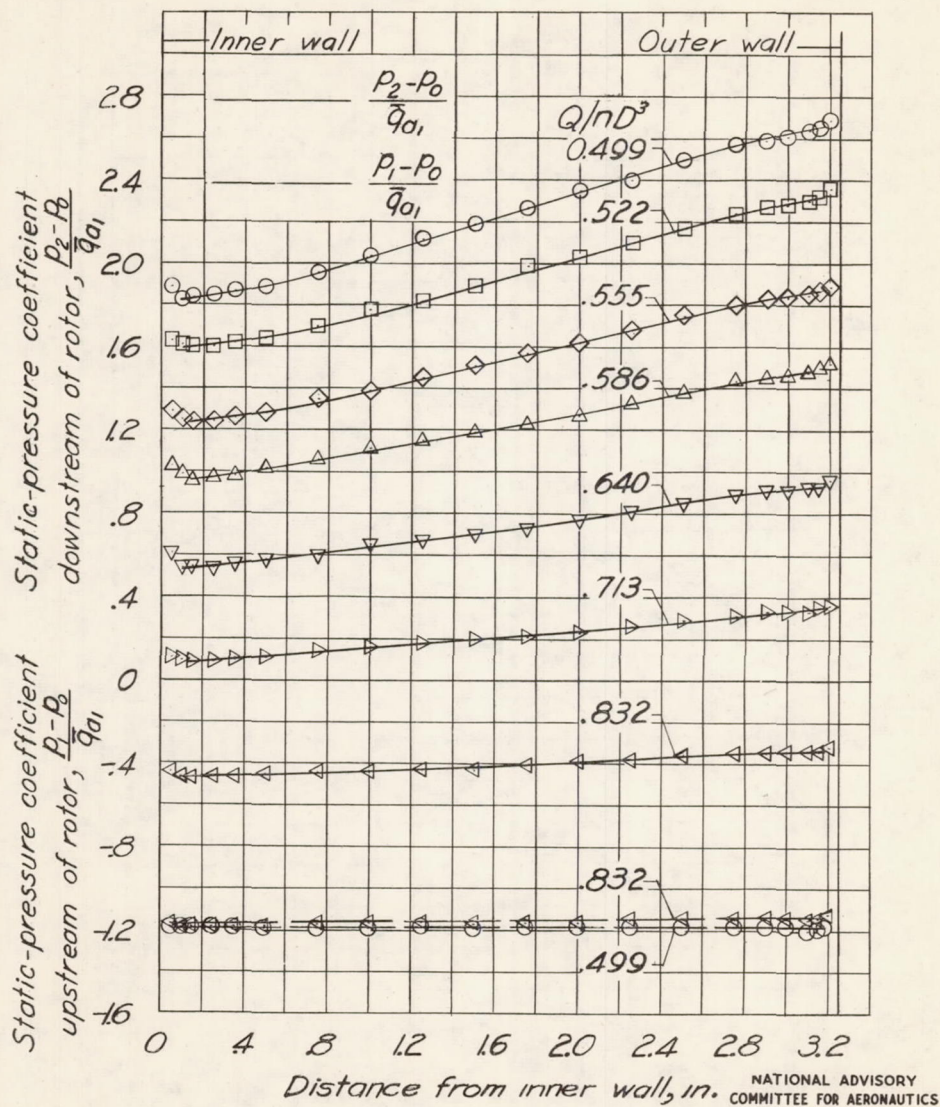 Inner wall
Outer wall
p₂-p₀
q̄ₐ₁
p₁-p₀
q̄ₐ₁
Q/nD³
0.499
.522
.555
.586
.640
.713
.832
.832
.499
2.8
2.4
2.0
1.6
1.2
.8
.4
0
-.4
-.8
-1.2
-1.6
Static-pressure coefficient
downstream of rotor, p₂-p₀/q̄ₐ₁
Static-pressure coefficient
upstream of rotor, p₁-p₀/q̄ₐ₁
0 .4 .8 1.2 1.6 2.0 2.4 2.8 3.2
Distance from inner wall, in.
NATIONAL ADVISORY
COMMITTEE FOR AERONAUTICS